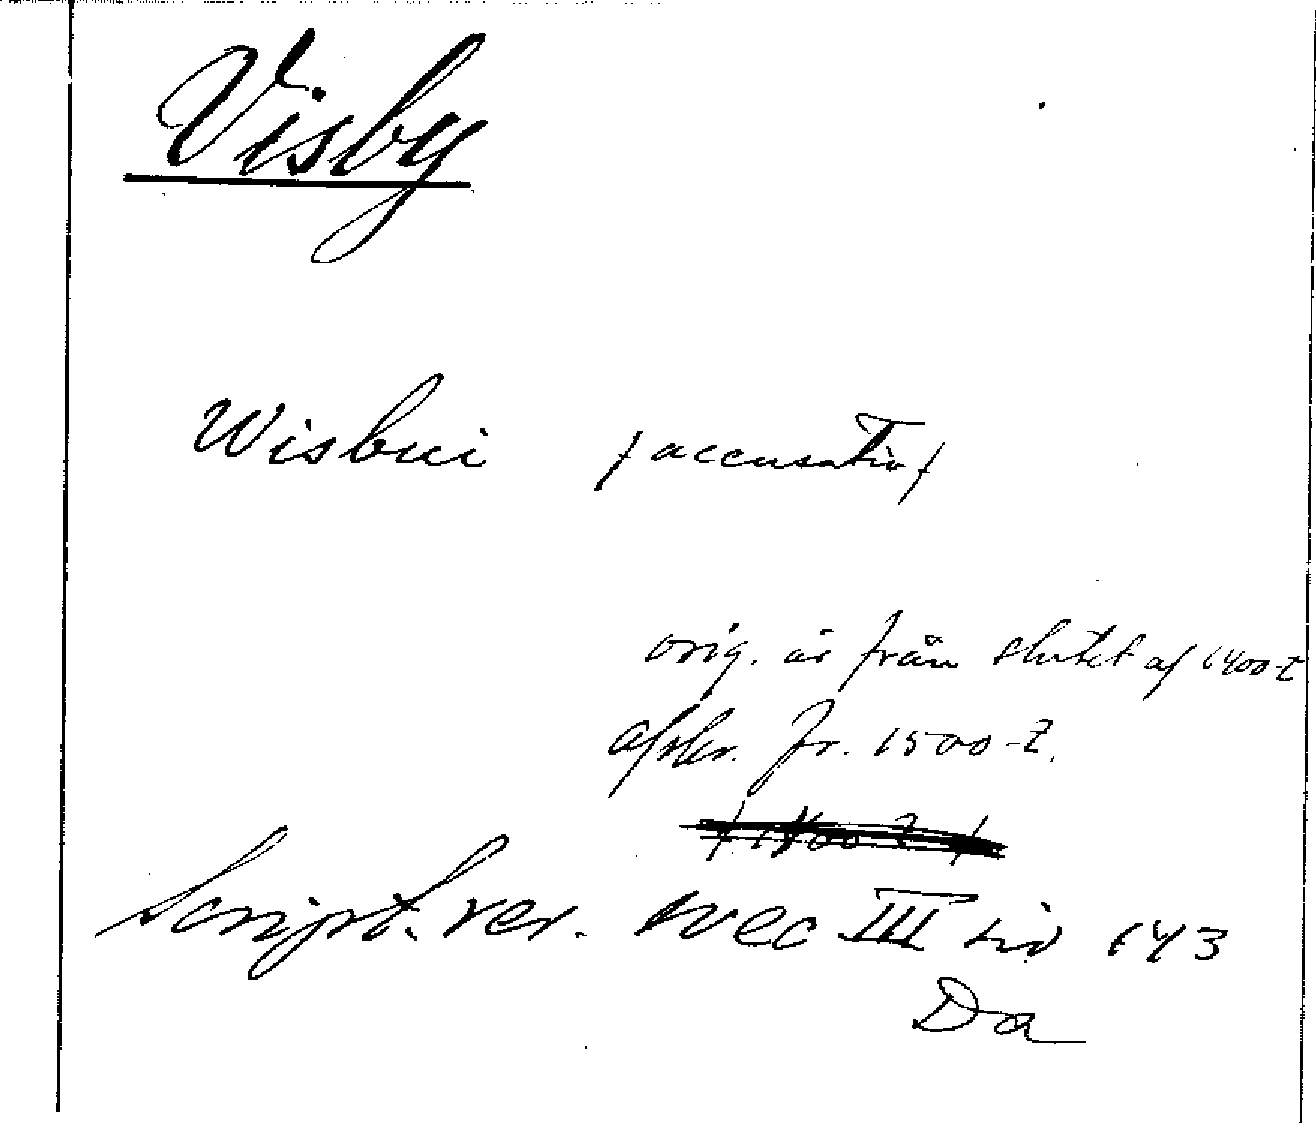 Visby
Wisbui /accusativ/
orig. är från slutet af 1400-t
afskr. fr. 1500-t.
/1400 t/
Script. rer. svec III sid 143
Da